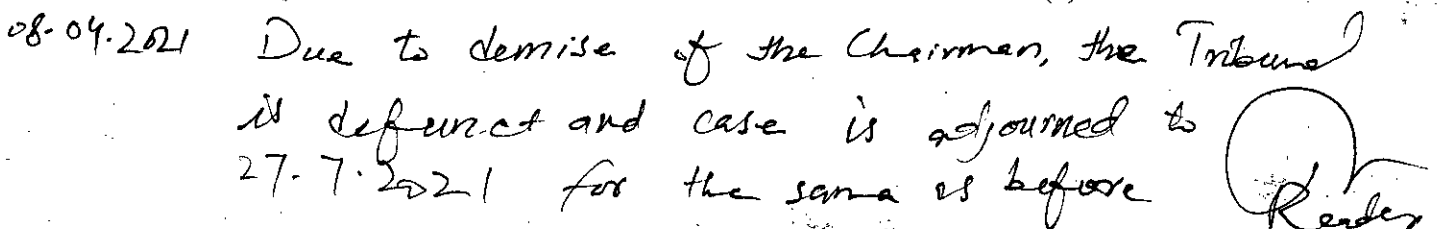 08.04.2021 Due to demise of the Chairman, the Tribunal
is defunct and case is adjourned to
27.7.2021 for the same as before
Reader